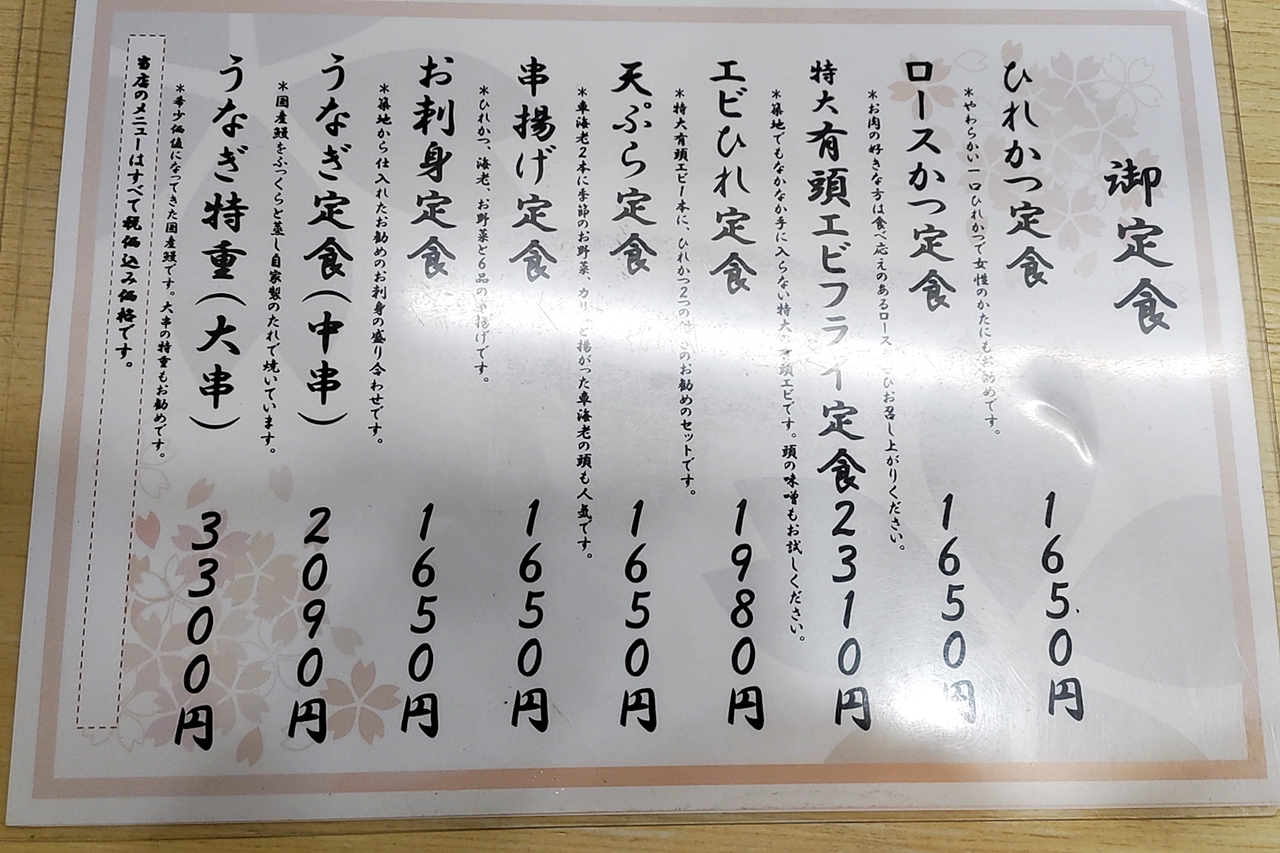 御定食
ひれかつ定食 1650円
＊やわらかい一口ひれかつで女性のかたにもお勧めです。
ロースかつ定食 1650円
＊お肉の好きな方は食べ応えのあるロースをぜひお召し上がりください。
特大有頭エビフライ定食 2310円
＊築地でもなかなか手に入らない特大の有頭エビです。頭の味噌もお試しください。
エビひれ定食 1980円
＊特大有頭エビ一本に、ひれかつ2つの のお勧めのセットです。
天ぷら定食 1650円
＊車海老2本に季節のお野菜、カリッと揚がった車海老の頭も人気です。
串揚げ定食 1650円
＊ひれかつ、海老、お野菜と6品の串揚げです。
お刺身定食 1650円
＊築地から仕入れたお勧めのお刺身の盛り合わせです。
うなぎ定食(中串) 2090円
＊国産鰻をふっくらと蒸し自家製のたれで焼いています。
うなぎ特重(大串) 3300円
＊希少価値になってきた国産鰻です。大串の特重もお勧めです。
当店のメニューはすべて税込み価格です。